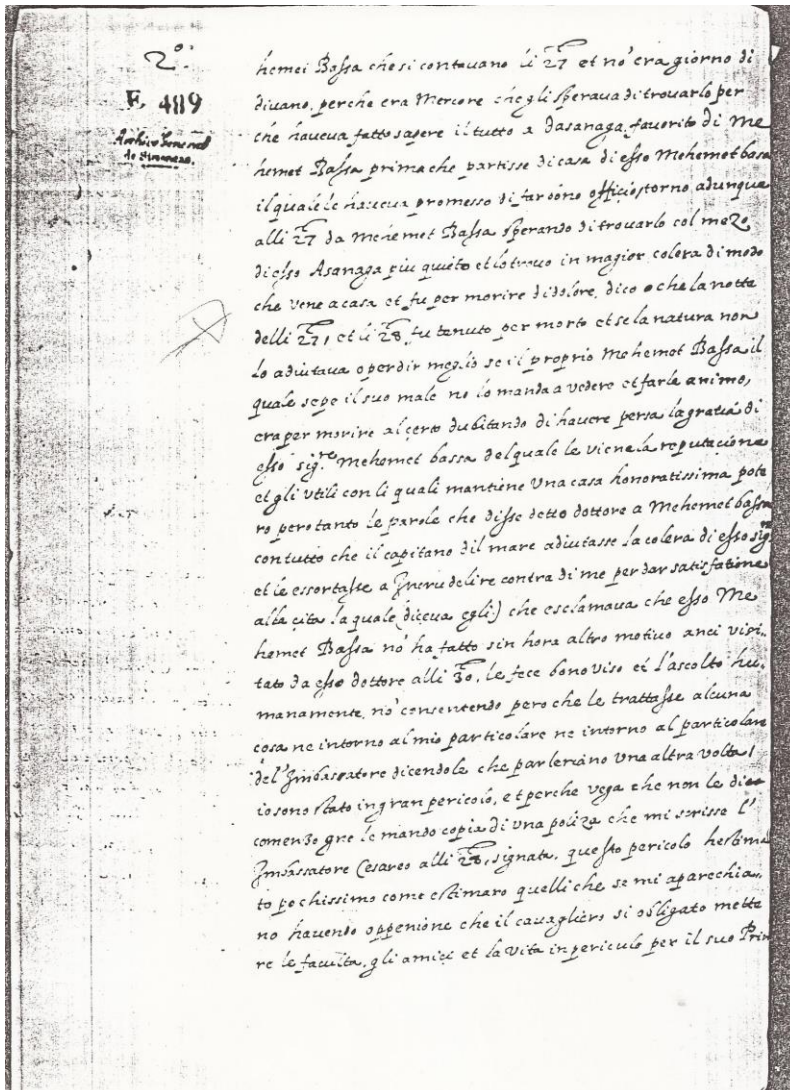 2º
E. 489
Archivo General
de Simancas.
hemei Bassa che si contavano li 27 et no' era giorno di
divano, perche era Mercore che gli sperava di trovarlo per
che haveva fatto sapere il tutto a Dasanaga favorito di Me
hemet Bassa prima che partisse di casa di esso Mehemet bassa
il quale le haveva promesso di far bono officio, torno adunque
alli 27 da Mehemet Bassa sperando di trovarlo col mezo
di esso Asanaga piu quieto et lo trovo in magior colera di modo
che vene a casa et fu per morire di dolore, dico che la notte
delli 27, et li 28 fu tenuto per morto et se la natura non
lo adiutava o per dir meglio se il proprio Mehemet Bassa il
quale sepe il suo male no lo manda a vedere et farle animo,
era per morire al certo dubitando di havere persa la gratia di
esso sig.re Mehemet bassa del quale le viene la reputacione
et gli utili con li quali mantiene una casa honoratissima pote
ro pero tanto le parole che disse detto dottore a Mehemet bassa
con tutto che il capitano dil mare adiutasse la colera di esso sig.re
et le essortasse a Incrudelire contra di me per dar satisfatione
alla cita la quale (diceva egli) che esclamava che esso Me
hemet Bassa no' ha fatto sin hora altro motivo anci visi
tato da esso dottore alli 30, le fece bono viso et l'ascolto hu
manamente, no' consentendo pero che le trattasse alcuna
cosa ne intorno al mio particolare ne intorno al particolare
del' Imbassatore dicendole che parleriano una altra volta,
io sono stato in gran pericolo, et perche vega che non le dico
gne le mando copia di una poliza che mi scrisse l'
Imbassatore Cesareo alli 28, signata, questo pericolo ho stima
to pochissimo come estimaro quelli che se mi aparechia
no havendo oppenione che il cavagliero si obligato mette
re le faculta, gli amici et la vita in periculo per il suo Prin